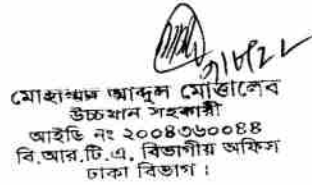 ৭/৮/২২
মোহাম্মদ আব্দুল মোত্তালেব
উচ্চমান সহকারী
আইডি নং ২০০৪৩৬০০৪৪
বি.আর.টি.এ, বিভাগীয় অফিস
ঢাকা বিভাগ।